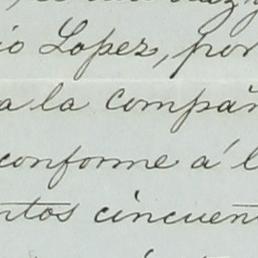 io Lopez, por
a la compañ
conforme a´ l
ntos cincuen